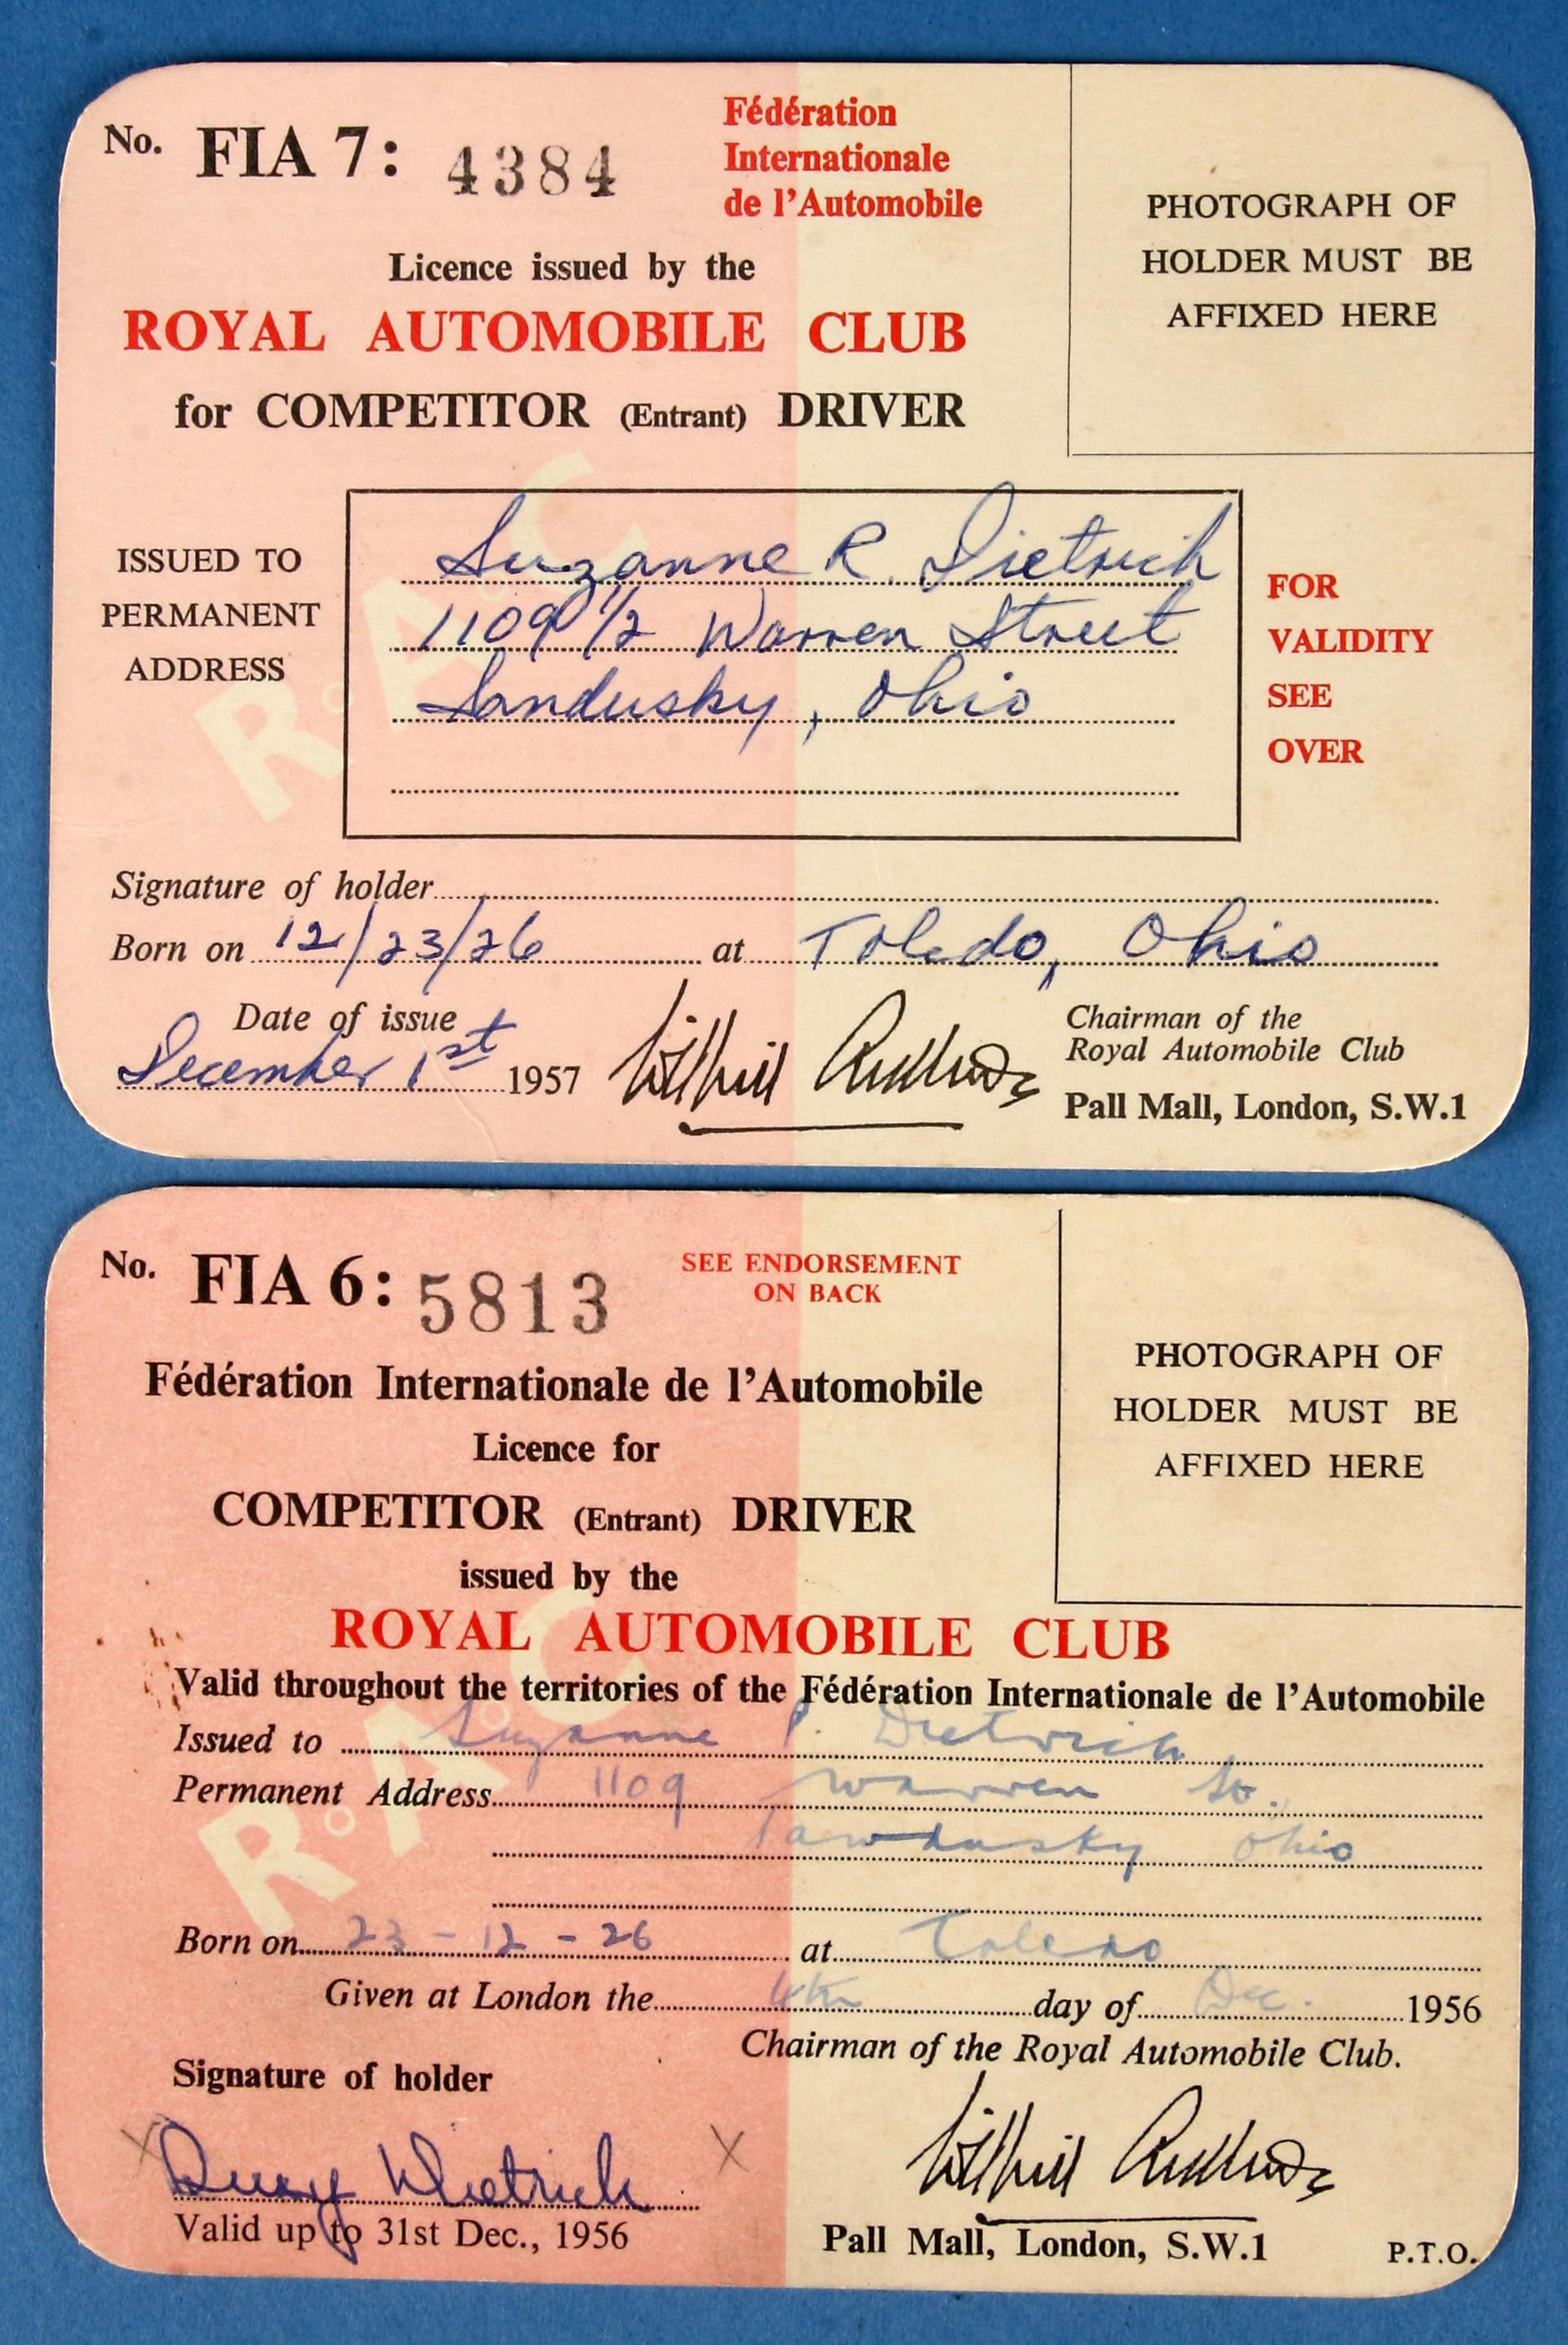 No. FIA 7: 4384
Fédération
Internationale
de l'Automobile
PHOTOGRAPH OF
HOLDER MUST BE
AFFIXED HERE
Licence issued by the
ROYAL AUTOMOBILE CLUB
for COMPETITOR (Entrant) DRIVER
R.A.C
ISSUED TO
PERMANENT
ADDRESS
Suzanne R. Dietrich
1109 1/2 Warren Street
Sandusky, Ohio
FOR
VALIDITY
SEE
OVER
Signature of holder
Born on 12/23/26 at Toledo, Ohio
Date of issue
December 1st 1957
Chairman of the
Royal Automobile Club
Pall Mall, London, S.W.1
No. FIA 6: 5813
SEE ENDORSEMENT
ON BACK
PHOTOGRAPH OF
HOLDER MUST BE
AFFIXED HERE
Fédération Internationale de l'Automobile
Licence for
COMPETITOR (Entrant) DRIVER
issued by the
ROYAL AUTOMOBILE CLUB
R.A.C
Valid throughout the territories of the Fédération Internationale de l'Automobile
Issued to Suzanne Dietrich
Permanent Address 1109 Warren St.
Sandusky Ohio
Born on 23-12-26 at Toledo
Given at London the 4th day of Dec. 1956
Chairman of the Royal Automobile Club.
Signature of holder
X Suzy Dietrich X
Valid up to 31st Dec., 1956
Pall Mall, London, S.W.1
P.T.O.